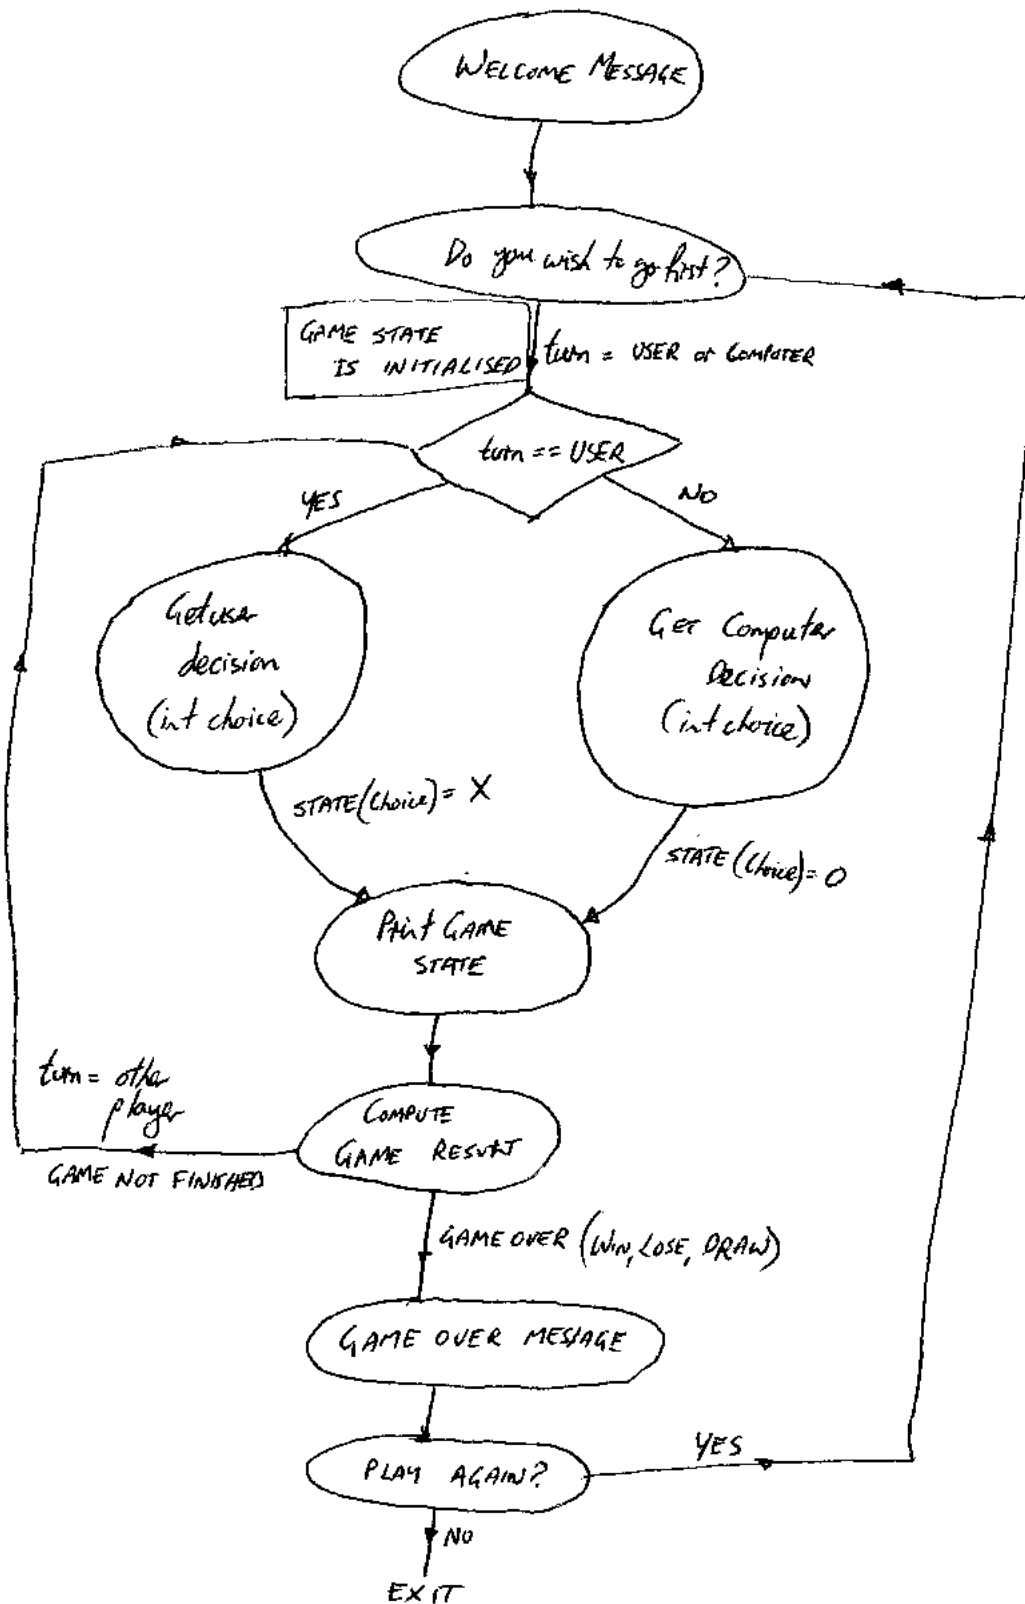 WELCOME MESSAGE
Do you wish to go first?
GAME STATE
IS INITIALISED
turn = USER or COMPUTER
turn == USER
YES
NO
Get user
decision
(int choice)
GET Computer
Decision
(int choice)
STATE(Choice) = X
STATE(Choice) = O
Print GAME
STATE
turn = other
player
COMPUTE
GAME RESULT
GAME NOT FINISHED
GAME OVER (WIN, LOSE, DRAW)
GAME OVER MESSAGE
PLAY AGAIN?
YES
NO
EXIT